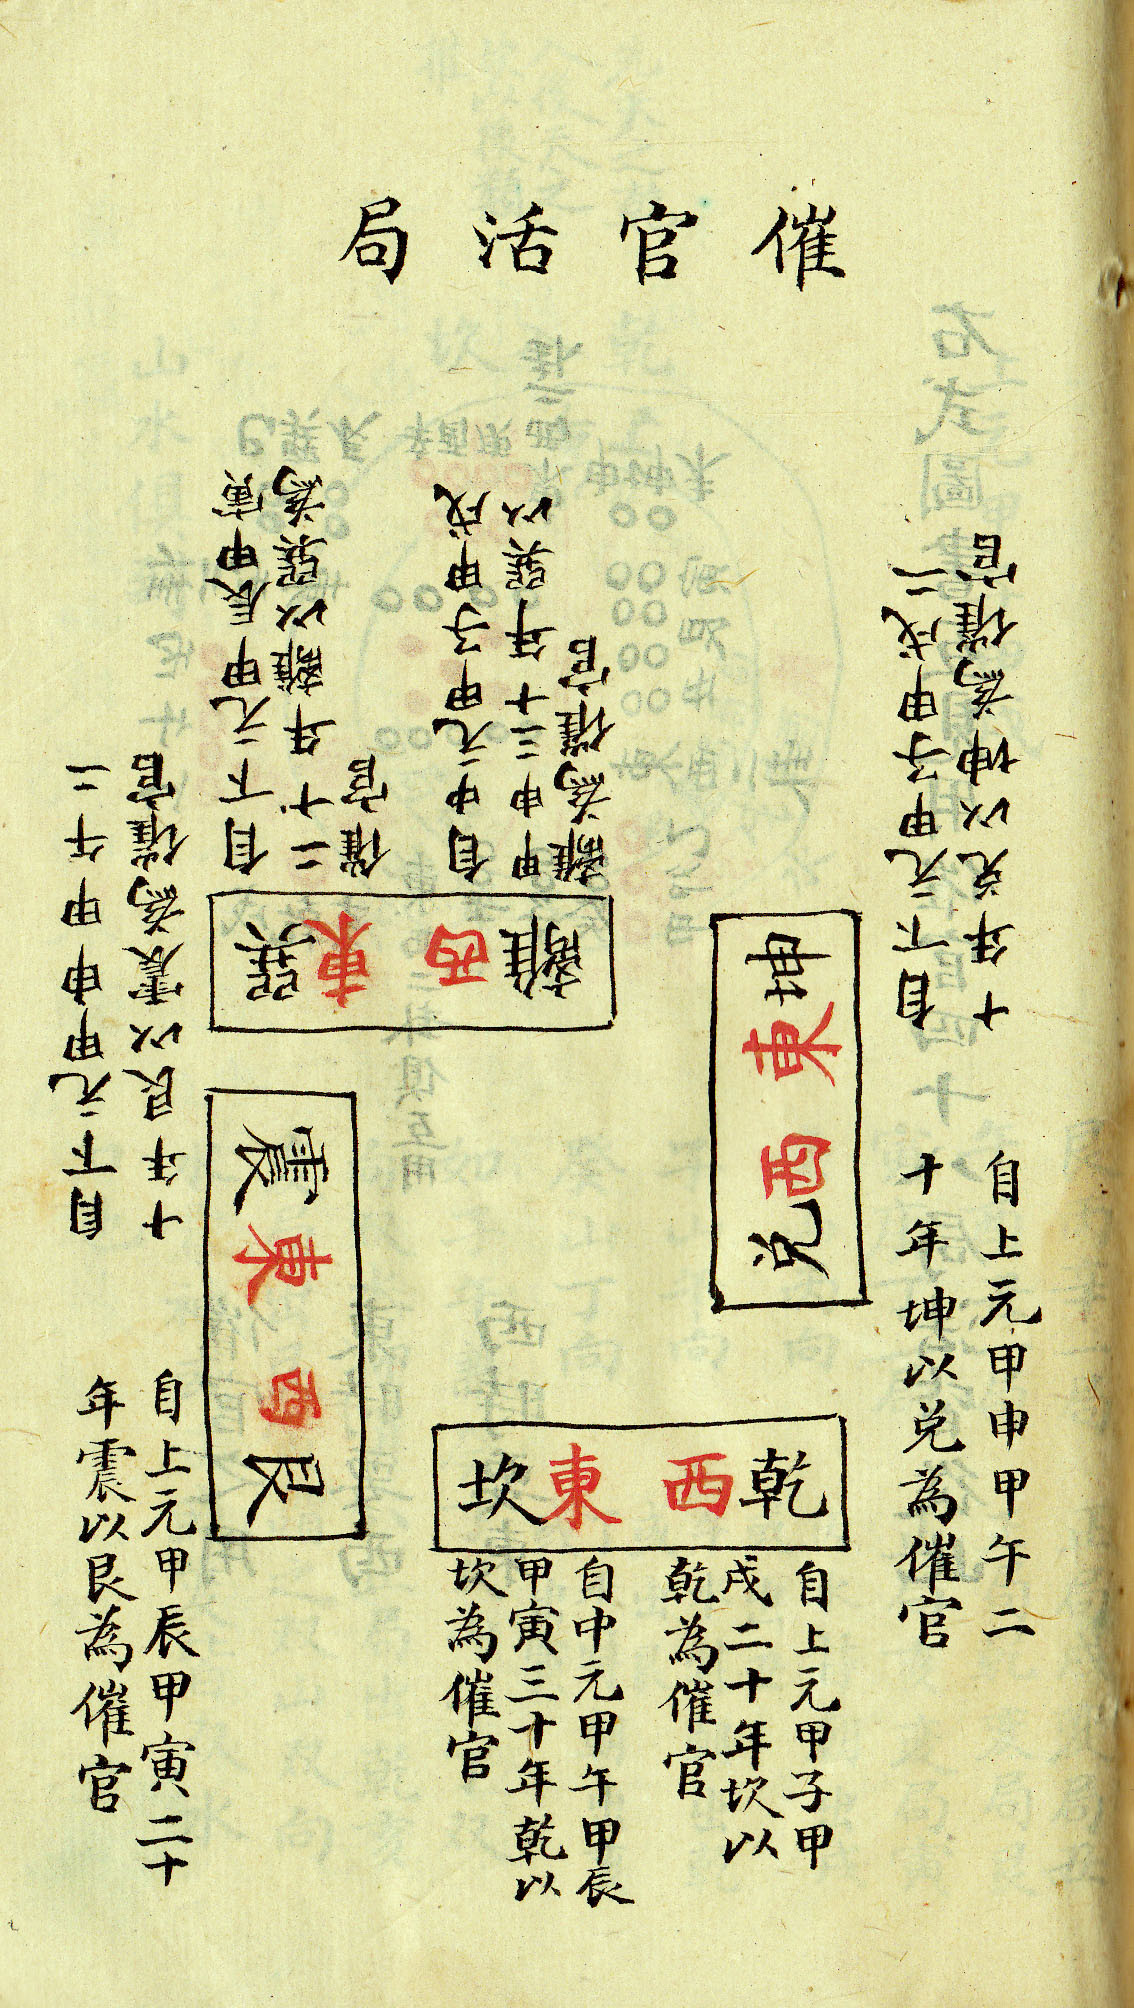 催官活局
自下元甲子甲戌二
十年兌以坤為催官
自上元甲申甲午二
十年坤以兌為催官
坤東西兌
自中元甲子甲戌
甲申三十年巽以
離為催官
自下元甲辰甲寅
二十年離以巽為
催官
巽東西離
自下元甲申甲午二
十年艮以震為催官
震東西艮
自上元甲辰甲寅二十
年震以艮為催官
乾西東坎
自上元甲子甲
戌二十年坎以
乾為催官
自中元甲午甲辰
甲寅三十年乾以
坎為催官